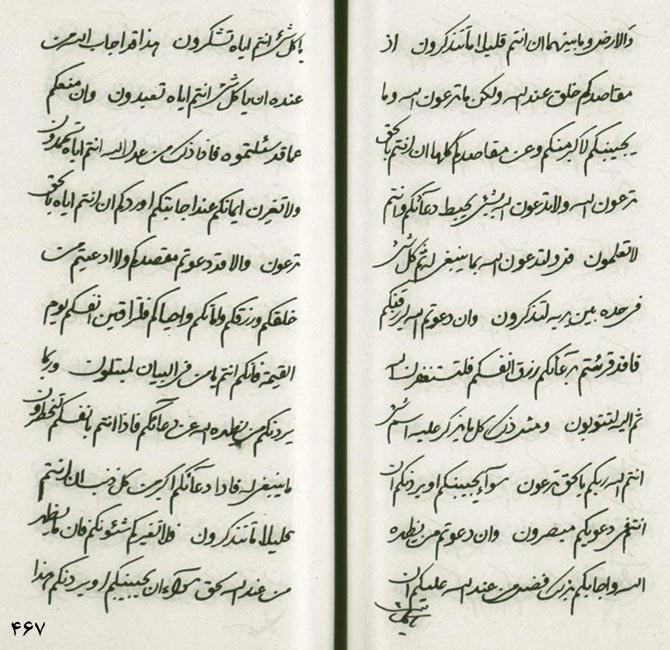 والارض وما بينهما ان انتم قليلا ما تتذكرون از
مقاصدكم خلق عند الله ولكن ما تدعون الله وما
يجيبنكم لاكبر منكم وعن مقاصدكم كلها ان انتم بالحق
تدعون الله ولا تدعون الله بشئ يحيط دعائكم وانتم
لا تعلمون فلتدعون الله بما ينبغي
في حده بين يديه لتذكرون وان دعوتم الله ان يرزقنكم
فاذا قد قرنتم بدعائكم رزق انفسكم فلتستغفرن الله
ثم اليه لتتوبون ومثل ذلك كل ما يذكر عليه اسم شئ
انتم الله ربكم بالحق تدعون سواء يجيبنكم او يردنكم ان
انتم في دعويكم مبصرون وان دعوتم من يظهره
الله واجابكم بذلك فضل من عند الله عليكم ان
يا كل شئ انتم اياه تشكرون هذا قد اجاب الله من
عنده ان يا كل شئ انتم اياه تعبدون وان منعكم
عما قد سئلتموه فاذا ذلك من عدل الله انتم اياه تحمدون
ولا تغيرن ايمانكم عند اجابتكم او ردكم ان انتم اياه بالحق
تدعون والا قد دعوتم مقصدكم ولا ادعيتم من
خلقكم ورزقكم واماتكم واحياكم فلتراقبن انفسكم يوم
القيمة فانكم انتم يا من في البيان لمبتلون وربما
يردنكم من يظهره الله عن دعائكم فاذا انتم بانفسكم لتنظرون
ما ينبغي له فاذا دعائكم اكبر من كل ذنب ان انتم
قليلا ما تتذكرون فلا تغيركم شئونكم فان ما يظهر
من عند الله لحق سواء ان يجيبنكم او يردنكم هذا
۴۶۷